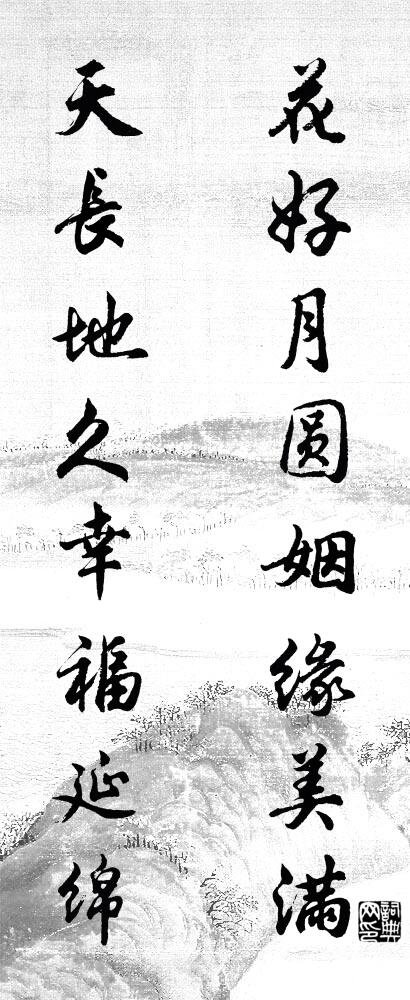 花好月圆姻缘美满
天長地久幸福延绵
詞典網印